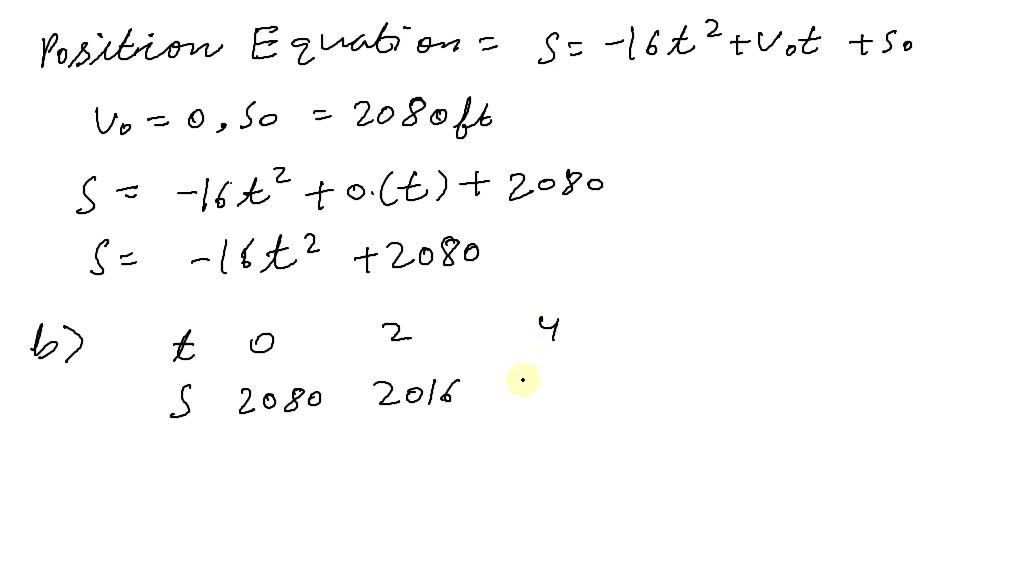 Position Equation = S = -16t² + v₀t + s₀
v₀ = 0, s₀ = 2080ft
S = -16t² + 0.(t) + 2080
S = -16t² + 2080
b) t 0 2 4
S 2080 2016